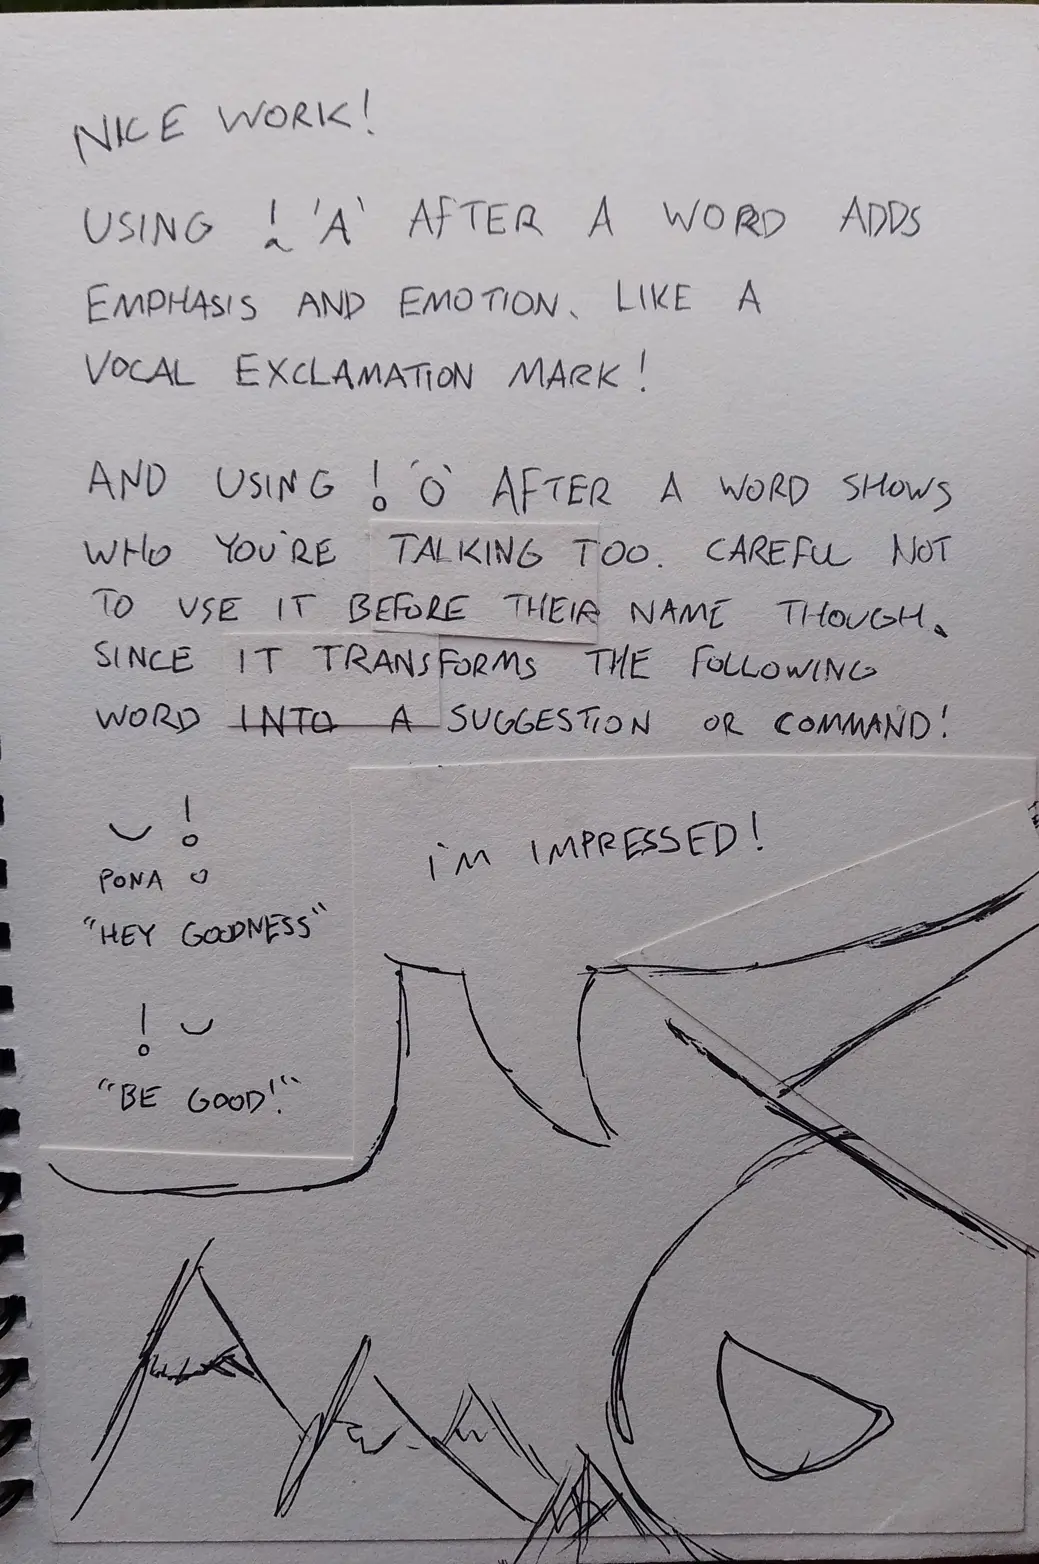 NICE WORK!
USING ! 'A' AFTER A WORD ADDS
EMPHASIS AND EMOTION, LIKE A
VOCAL EXCLAMATION MARK!
AND USING ! 'O' AFTER A WORD SHOWS
WHO YOU'RE TALKING TOO. CAREFUL NOT
TO USE IT BEFORE THEIR NAME THOUGH,
SINCE IT TRANSFORMS THE FOLLOWING
WORD INTO A SUGGESTION OR COMMAND!
PONA O
"HEY GOODNESS"
"BE GOOD!"
I'M IMPRESSED!